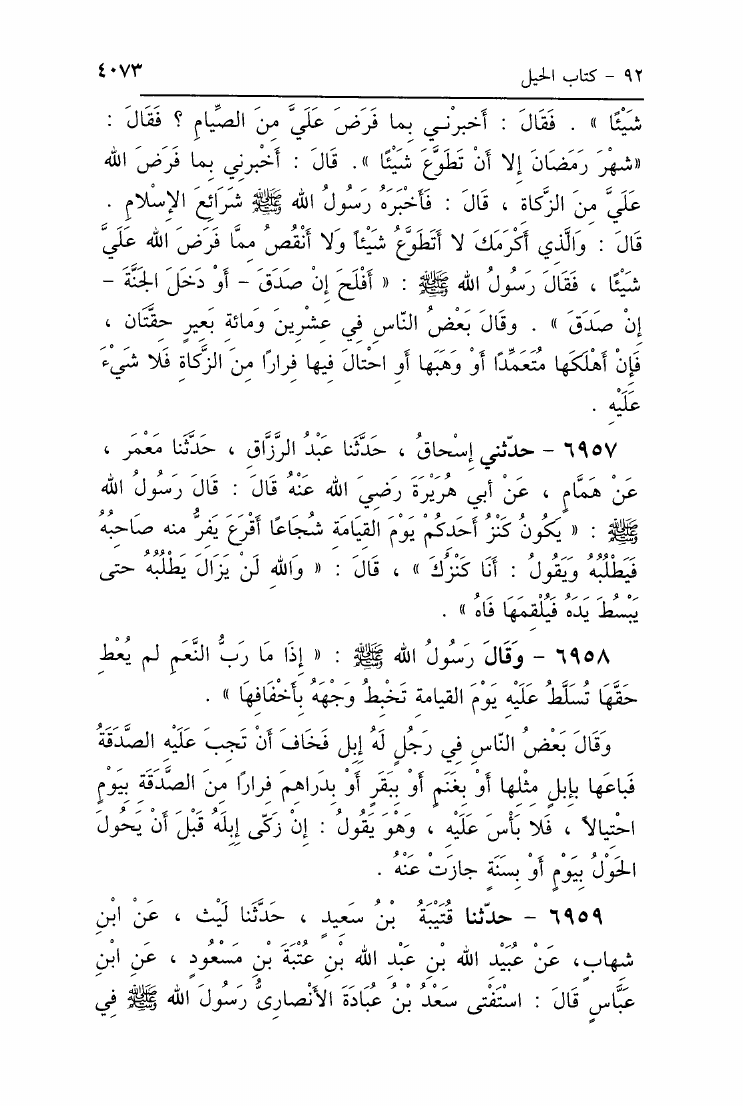 ٩٢ - كتاب الحيل ٤٠٧٣
شَيْئًا » . فَقَالَ : أَخبرْنـي بما فَرَضَ عَلَيَّ مِنَ الصِّيام ؟ فَقَالَ :
«شهْرَ رَمَضَانَ إلا أنْ تَطَوَّعَ شَيْئًا ». قَالَ : أَخْبرني بما فَرَضَ الله
عَلَيَّ مِنَ الزَّكاة ، قَالَ : فَأَخْبَرَهُ رَسُولُ الله ﷺ شَرَائِعَ الإسْلام .
قَالَ : وَالَّذي أكْرَمَكَ لا أتَطَوَّعُ شَيْئاً وَلا أنْقُصُ ممَّا فَرَضَ الله عَلَيَّ
شَيْئًا ، فَقَالَ رَسُولُ الله ﷺ : « أفْلَحَ إنْ صَدَقَ - أَوْ دَخَلَ الجَنَّةَ -
إنْ صدَقَ » . وقَالَ بَعْضُ النّاس في عشْرينَ وَمائة بَعير حقَّتَان ،
فَإنْ أهْلَكَها مُتَعَمِّدًا أوْ وَهَبَها أو احْتالَ فيها فرارًا منَ الزَّكاة فَلا شَيْءَ
عَلَيْه .
٦٩٥٧ - حدّثني إسْحاقُ ، حَدَّثَنا عَبْدُ الرَّزَّاق ، حَدَّثَنا مَعْمَر ،
عَنْ هَمَّام ، عَنْ أبي هُرَيْرَةَ رَضيَ الله عَنْهُ قَالَ : قَالَ رَسُولُ الله
ﷺ : « يَكُونُ كَنْزُ أَحَدكُمْ يَوْمَ القيَامَة شُجَاعًا أقْرَعَ يَفرُّ منه صاحبُهُ
فَيَطْلُبُهُ وَيَقُولُ : أنَا كَنْزُكَ » ، قَالَ : « وَالله لَنْ يَزَالَ يَطْلُبُهُ حتى
يَبْسُطَ يَدَهُ فَيُلْقمَهَا فَاهُ » .
٦٩٥٨ - وَقَالَ رَسُولُ الله ﷺ : « إذَا مَا رَبُّ النَّعَم لم يُعْط
حَقَّهَا تُسَلَّطُ عَلَيْه يَوْمَ القيامة تَخْبطُ وَجْهَهُ بأخْفَافهَا » .
وَقَالَ بَعْضُ النّاس في رَجُل لَهُ إبل فَخَافَ أنْ تَجبَ عَلَيْه الصَّدَقَةُ
فَباعَها بإبل مثْلها أوْ بغَنَم أوْ ببَقَر أوْ بدَراهمَ فرارًا منَ الصَّدَقَة بيَوْم
احْتيالاً ، فَلا بَأْسَ عَلَيْه ، وَهْوَ يَقُولُ : إنْ زَكّى إبلَهُ قَبْلَ أنْ يَحُولَ
الحَوْلُ بيَوْم أوْ بسَنَة جازَتْ عَنْهُ .
٦٩٥٩ - حدّثنا قُتَيْبَةُ بْنُ سَعيد ، حَدَّثَنا لَيْث ، عَنْ ابْن
شهاب، عَنْ عُبَيْد الله بْن عَبْد الله بْن عُتْبَةَ بْن مَسْعُود ، عَن ابْن
عَبَّاس قَالَ : اسْتَفْتى سَعْدُ بْنُ عُبَادَةَ الأنْصارىُّ رَسُولَ الله ﷺ في